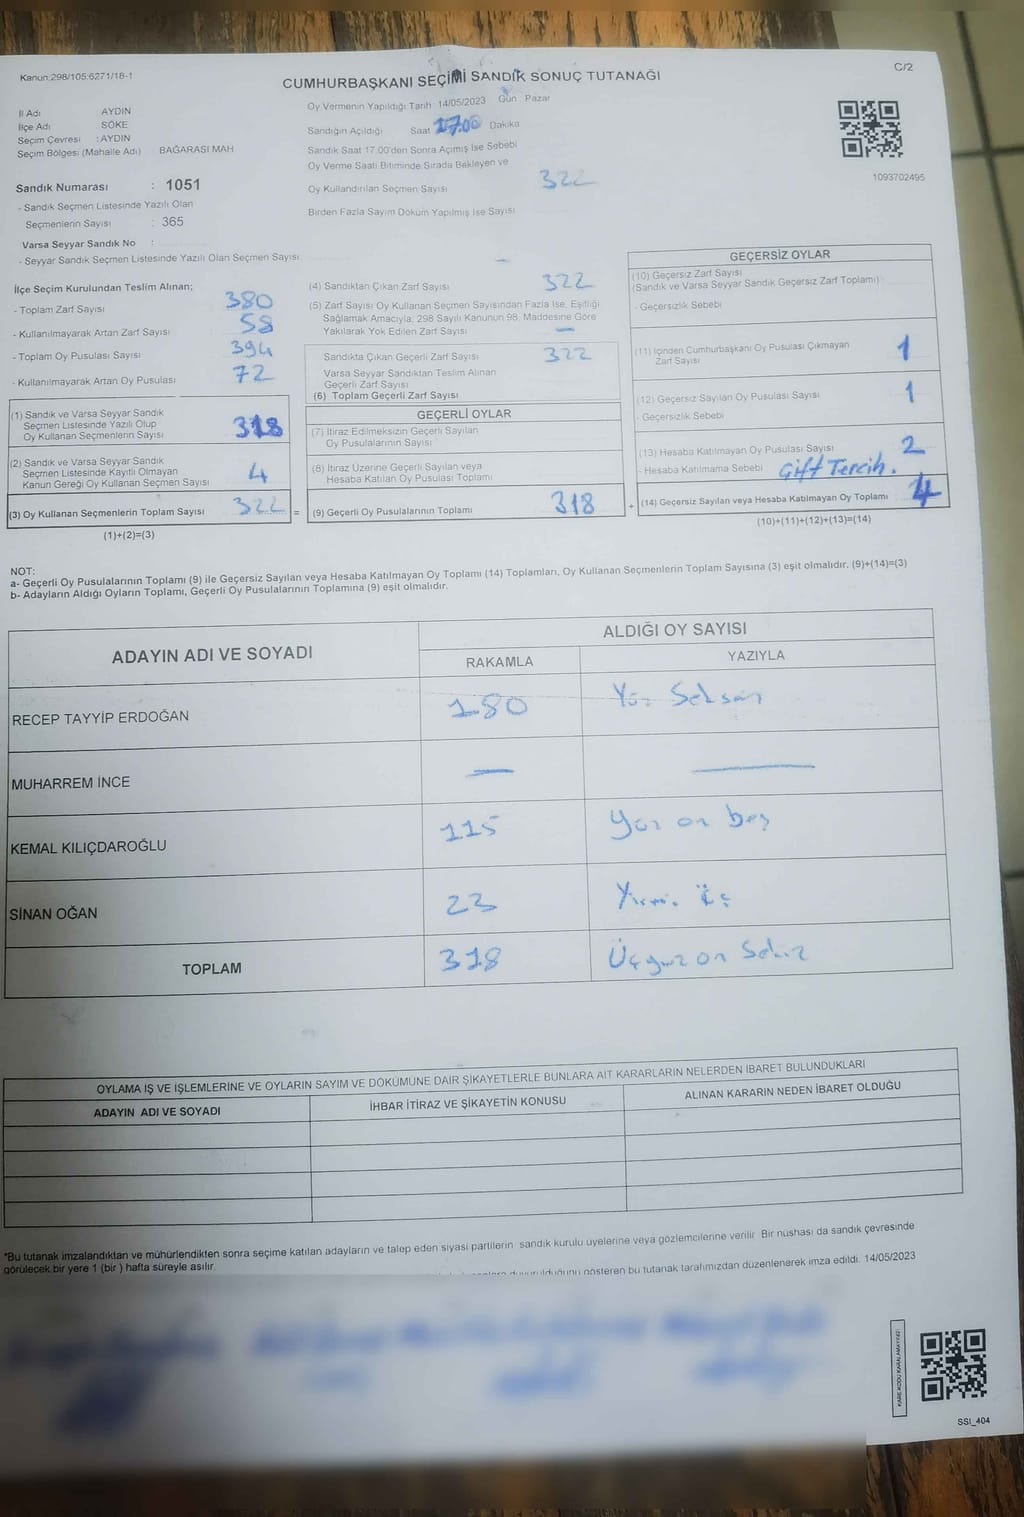 Kanun:298/105:6271/18-1
C/2
CUMHURBAŞKANI SEÇİMİ SANDIK SONUÇ TUTANAĞI
İl Adı AYDIN
İlçe Adı SÖKE
Seçim Çevresi : AYDIN
Seçim Bölgesi (Mahalle Adı) BAĞARASI MAH
Sandık Numarası : 1051
- Sandık Seçmen Listesinde Yazılı Olan
Seçmenlerin Sayısı : 365
Varsa Seyyar Sandık No :
- Seyyar Sandık Seçmen Listesinde Yazılı Olan Seçmen Sayısı: –
Oy Vermenin Yapıldığı Tarih 14/05/2023 Gün Pazar
Sandığın Açıldığı Saat 17.00 Dakika
Sandık Saat 17.00'den Sonra Açımış İse Sebebi
Oy Verme Saati Bitiminde Sırada Bekleyen ve
Oy Kullandırılan Seçmen Sayısı 322
Birden Fazla Sayım Döküm Yapılmış İse Sayısı
1093702495
İlçe Seçim Kurulundan Teslim Alınan;
- Toplam Zarf Sayısı 380
- Kullanılmayarak Artan Zarf Sayısı 58
- Toplam Oy Pusulası Sayısı 394
- Kullanılmayarak Artan Oy Pusulası 72
(1) Sandık ve Varsa Seyyar Sandık
Seçmen Listesinde Yazılı Olup
Oy Kullanan Seçmenlerin Sayısı 318
(2) Sandık ve Varsa Seyyar Sandık
Seçmen Listesinde Kayıtlı Olmayan
Kanun Gereği Oy Kullanan Seçmen Sayısı 4
(3) Oy Kullanan Seçmenlerin Toplam Sayısı 322 =
(1)+(2)=(3)
(4) Sandıktan Çıkan Zarf Sayısı 322
(5) Zarf Sayısı Oy Kullanan Seçmen Sayısından Fazla İse, Eşitliği
Sağlamak Amacıyla, 298 Sayılı Kanunun 98. Maddesine Göre
Yakılarak Yok Edilen Zarf Sayısı –
Sandıkta Çıkan Geçerli Zarf Sayısı 322
Varsa Seyyar Sandıktan Teslim Alınan
Geçerli Zarf Sayısı
(6) Toplam Geçerli Zarf Sayısı
GEÇERLİ OYLAR
(7) İtiraz Edilmeksizin Geçerli Sayılan
Oy Pusulalarının Sayısı
(8) İtiraz Üzerine Geçerli Sayılan veya
Hesaba Katılan Oy Pusulası Toplamı
(9) Geçerli Oy Pusulalarının Toplamı 318 +
GEÇERSİZ OYLAR
(10) Geçersiz Zarf Sayısı
(Sandık ve Varsa Seyyar Sandık Geçersiz Zarf Toplamı)
- Geçersizlik Sebebi
(11) İçinden Cumhurbaşkanı Oy Pusulası Çıkmayan
Zarf Sayısı 1
(12) Geçersiz Sayılan Oy Pusulası Sayısı 1
- Geçersizlik Sebebi
(13) Hesaba Katılmayan Oy Pusulası Sayısı 2
- Hesaba Katılmama Sebebi Çift Tercih.
(14) Geçersiz Sayılan veya Hesaba Katılmayan Oy Toplamı 4
(10)+(11)+(12)+(13)=(14)
NOT:
a- Geçerli Oy Pusulalarının Toplamı (9) ile Geçersiz Sayılan veya Hesaba Katılmayan Oy Toplamı (14) Toplamları, Oy Kullanan Seçmenlerin Toplam Sayısına (3) eşit olmalıdır. (9)+(14)=(3)
b- Adayların Aldığı Oyların Toplamı, Geçerli Oy Pusulalarının Toplamına (9) eşit olmalıdır.
ADAYIN ADI VE SOYADI ALDIĞI OY SAYISI
RAKAMLA YAZIYLA
RECEP TAYYİP ERDOĞAN 180 Yüz Seksan
MUHARREM İNCE — —
KEMAL KILIÇDAROĞLU 115 Yüz on beş
SİNAN OĞAN 23 Yirmi Üç
TOPLAM 318 Üçyüz on Sekiz
OYLAMA İŞ VE İŞLEMLERİNE VE OYLARIN SAYIM VE DÖKÜMÜNE DAİR ŞİKAYETLERLE BUNLARA AİT KARARLARIN NELERDEN İBARET BULUNDUKLARI
ADAYIN ADI VE SOYADI İHBAR İTİRAZ VE ŞİKAYETİN KONUSU ALINAN KARARIN NEDEN İBARET OLDUĞU
*Bu tutanak imzalandıktan ve mühürlendikten sonra seçime katılan adayların ve talep eden siyasi partilerin sandık kurulu üyelerine veya gözlemcilerine verilir. Bir nüshası da sandık çevresinde
görülecek bir yere 1 (bir ) hafta süreyle asılır.
gösteren bu tutanak tarafımızdan düzenlenerek imza edildi. 14/05/2023
KARE KODU KARALAMAYINIZ!
SSI_404